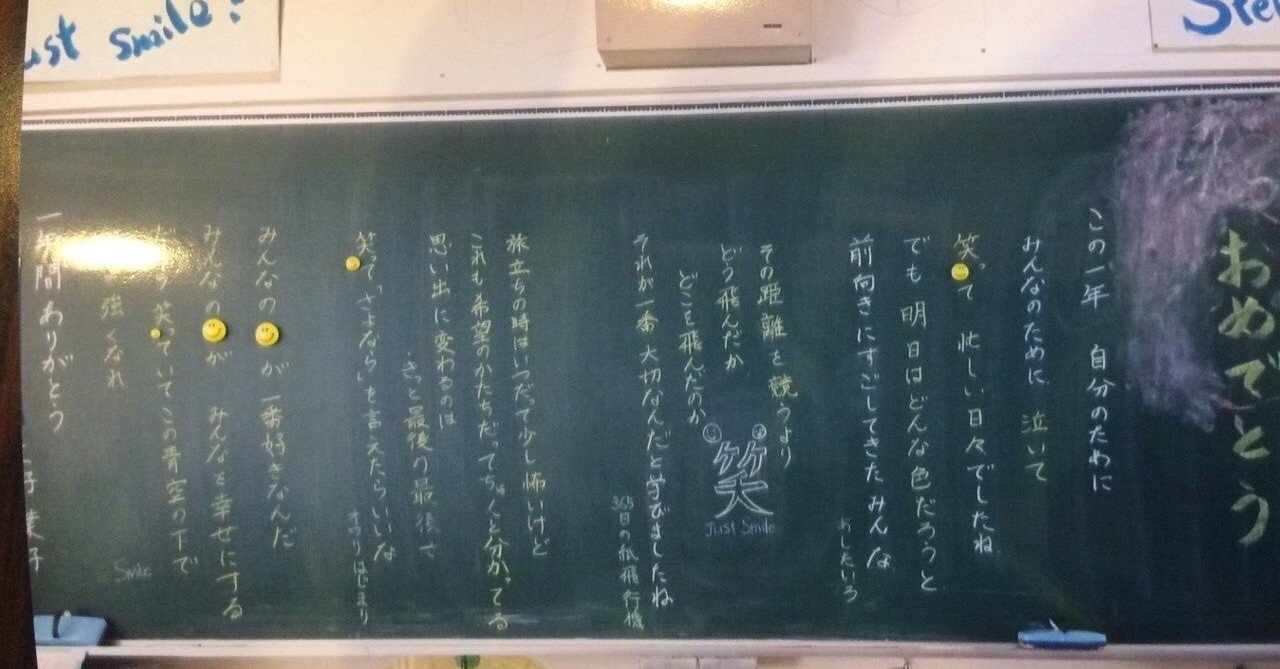 ust smile!
Ste
おめでとう
この一年 自分のために
みんなのために 泣いて
笑って 忙しい日々でしたね
でも 明日はどんな色だろうと
前向きにすごしてきたみんな
あしたいろ
その距離を競うより
どう飛んだか
どこを飛んだのか
笑
Just Smile
それが一番 大切なんだと学びましたね
365日の紙飛行機
旅立ちの時はいつだって少し怖いけど
これも希望のかたちだってちゃんと分かってる
思い出に変わるのは
きっと最後の最後で
笑って、「さよなら」を言えたらいいな
オワリはじまり
みんなの が 一番好きなんだ
みんなの が みんなを幸せにする
笑っていてこの青空の下で
強くなれ
Smile
一年間 ありがとう